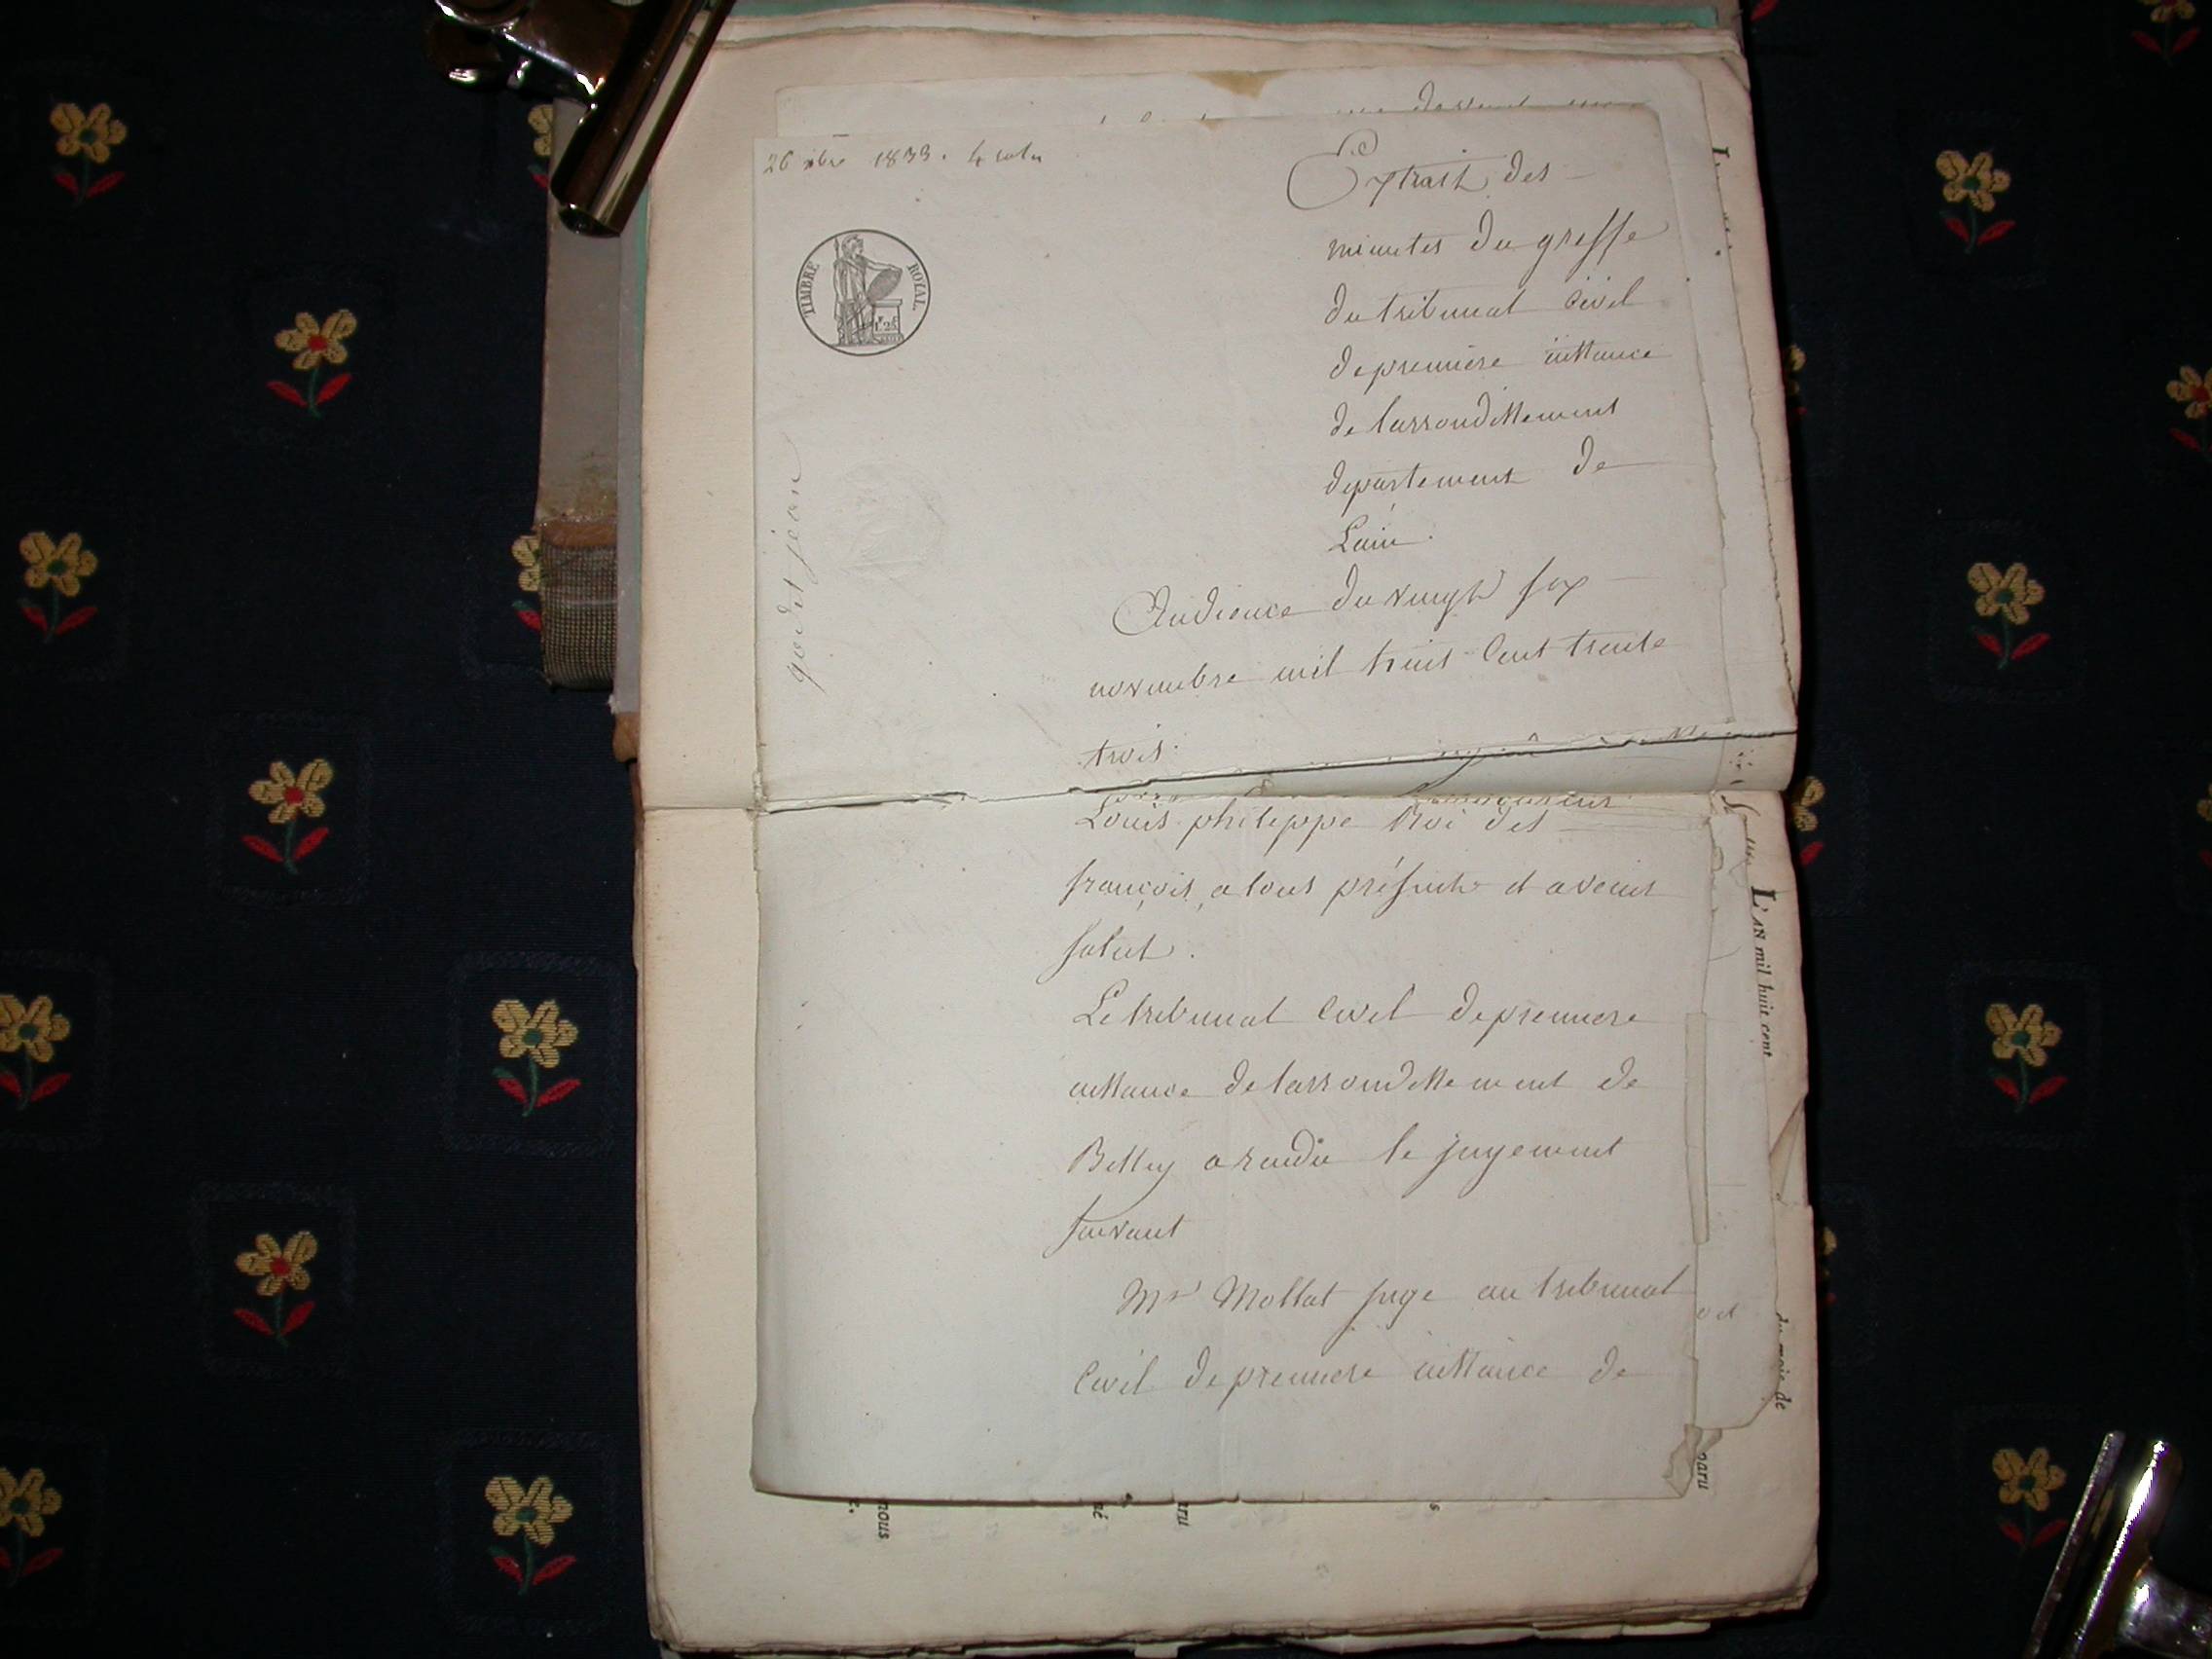 26 9bre 1833.
Extrait des
minutes du greffe
du tribunal civil
de premiere instance
de larrondissement
departement de
Lain.
TIMBRE ROYAL
1F.25C
goddet jean
Audience du vingt six
novembre mil huit cent trente
trois.
Louis philippe Roi des
françois, a tous présents et avenir
salut.
Le tribunal Civil de premiere
instance de larrondissement de
Belley a rendu le jugement
suivant
Mr Mollat juge au tribunal
Civil de premiere instance de
L'AN mil huit cent
du mois de
paru
nous